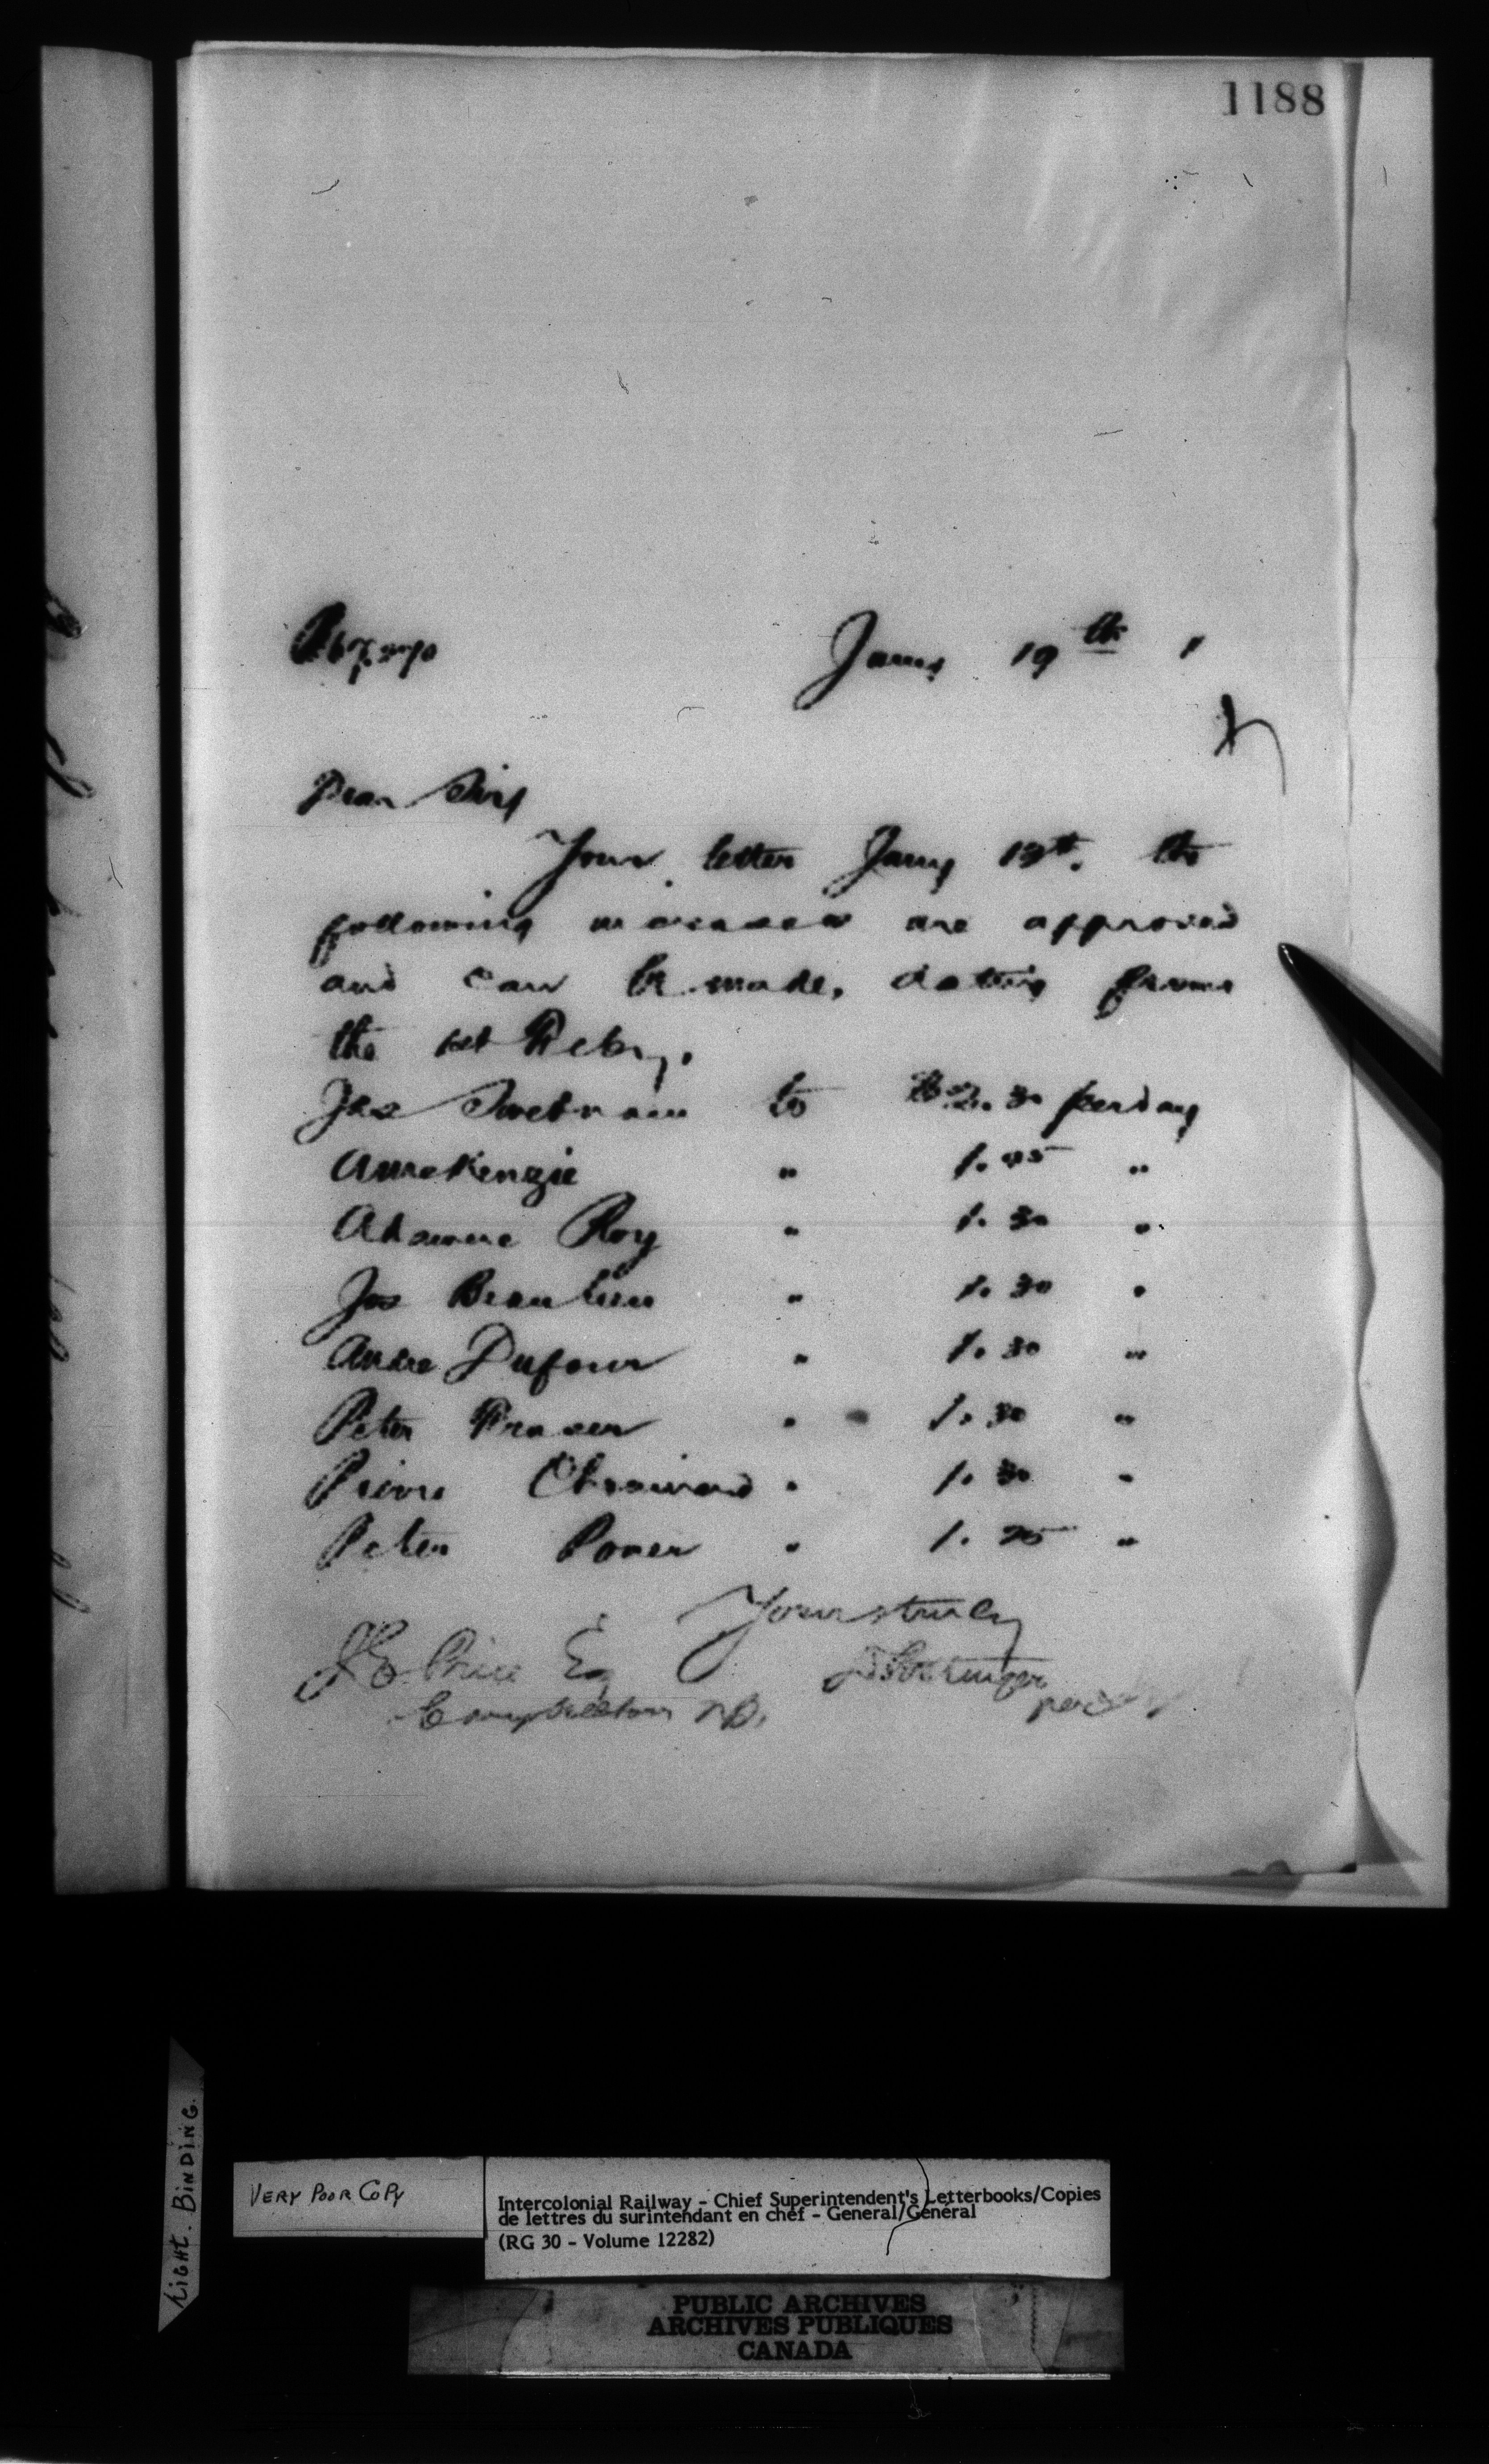 1188
Jany 19th
Dear Sir
Your letter Jany 13th. the
following increases are approved
and can be made, dating from
the 1st Feby.
Jas Swetnam to $2.30 per day
A McKenzie " 1.45 "
Roy " 1.30 "
Jos Beaulieu " 1.30 "
Andre Dufour " 1.30 "
Peter Fraser " 1.30 "
Pierre Chouinard " 1.30 "
Peter Power " 1.25 "
Yours truly
Price Esq D Pottinger
Campbellton NB. per
LIGHT. BINDING.
VERY POOR COPY
Intercolonial Railway - Chief Superintendent's Letterbooks/Copies
de lettres du surintendant en chef - General/Général
(RG 30 - Volume 12282)
PUBLIC ARCHIVES
ARCHIVES PUBLIQUES
CANADA